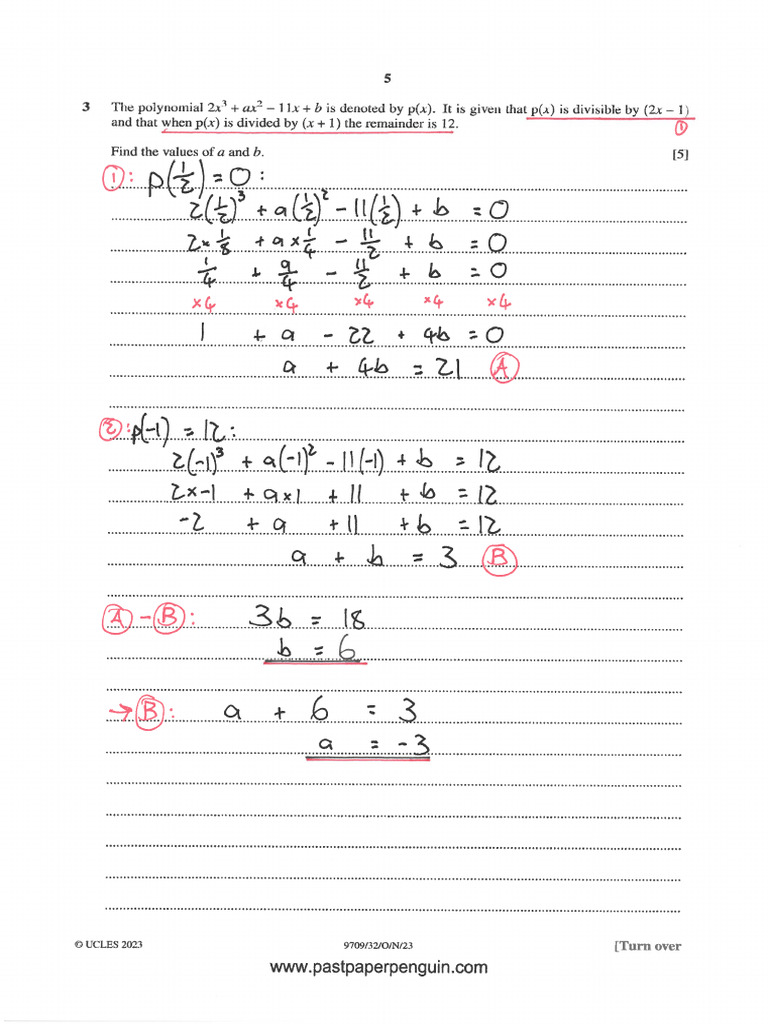 5
3 The polynomial 2x³ + ax² − 11x + b is denoted by p(x). It is given that p(x) is divisible by (2x − 1)
and that when p(x) is divided by (x + 1) the remainder is 12.
①
Find the values of a and b. [5]
①: p(1/2) = 0 :
2(1/2)³ + a(1/2)² − 11(1/2) + b = 0
2×1/8 + a×1/4 − 11/2 + b = 0
1/4 + a/4 − 11/2 + b = 0
×4 ×4 ×4 ×4 ×4
1 + a − 22 + 4b = 0
a + 4b = 21 Ⓐ
②: p(−1) = 12 :
2(−1)³ + a(−1)² − 11(−1) + b = 12
2×−1 + a×1 + 11 + b = 12
−2 + a + 11 + b = 12
a + b = 3 Ⓑ
Ⓐ − Ⓑ : 3b = 18
b = 6
→ Ⓑ : a + 6 = 3
a = −3
© UCLES 2023 9709/32/O/N/23 [Turn over
www.pastpaperpenguin.com